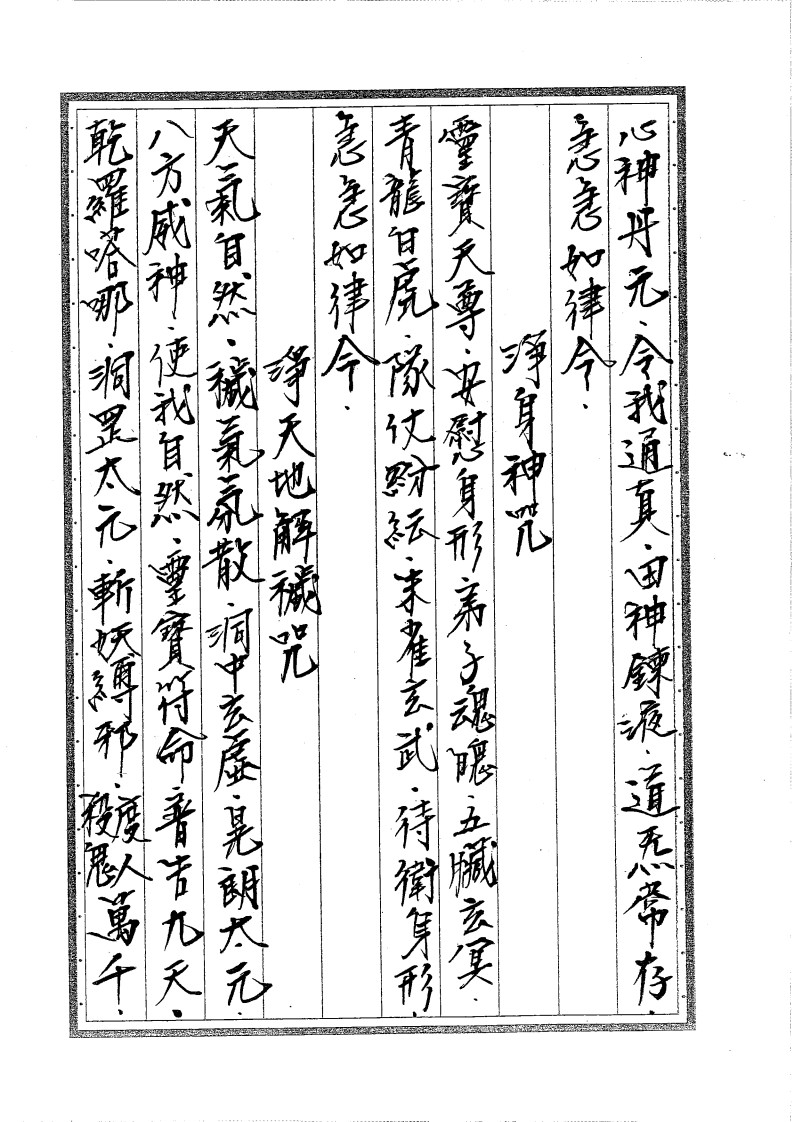 心神丹元．令我通真．由神鍊液．道炁常存．
急急如律令．
淨身神咒
靈寶天尊．安慰身形弟子魂魄．五臟玄冥．
青龍白虎．隊仗紛紜．朱雀玄武．待衛身形．
急急如律令．
淨天地解穢咒
天氣自然．穢氣氛散．洞中玄虛．晃朗太元．
八方威神．使我自然．靈寶符命普告九天．
乾羅嗒哪．洞罡太元．斬妖縛邪．殺鬼度人萬千．